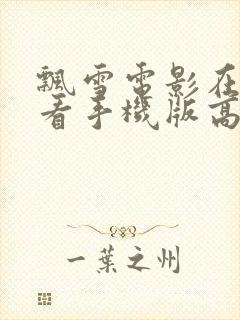 飄雪電影在
看手機版高
一葉之州